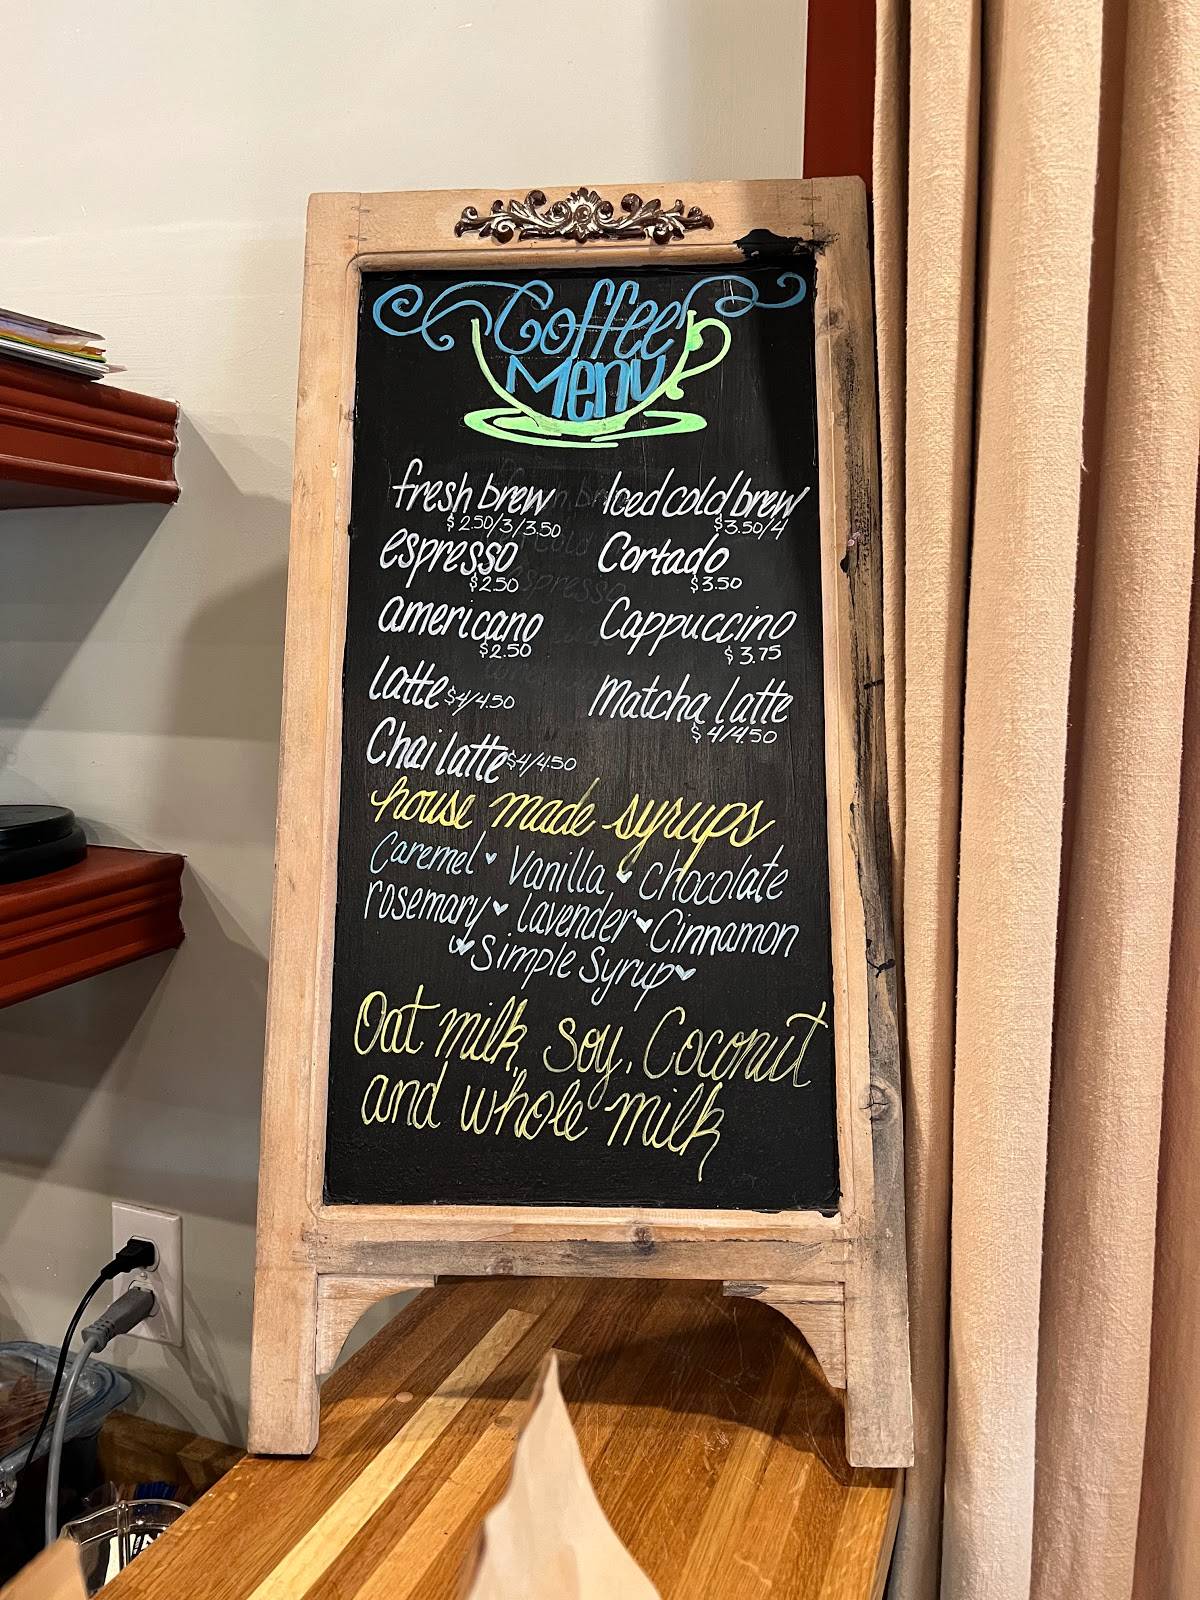 Coffee
Menu
fresh brew
$2.50/3/3.50
espresso
$2.50
americano
$2.50
latte $4/4.50
Chai latte $4/4.50
Iced cold brew
$3.50/4
Cortado
$3.50
Cappuccino
$3.75
Matcha latte
$4/4.50
house made syrups
Caremel Vanilla Chocolate
rosemary lavender Cinnamon
Simple Syrup
Oat milk, Soy, Coconut
and whole milk